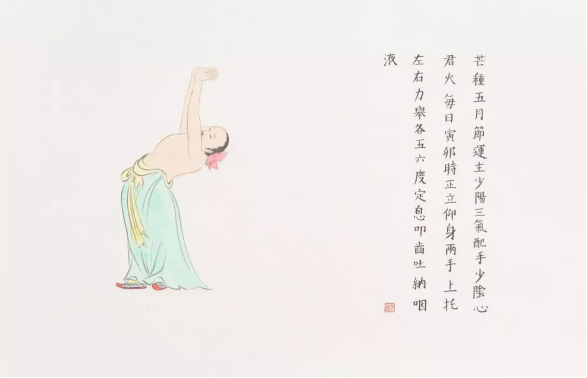 芒種五月節運主少陽三氣配手少陰心
君火每日寅卯時正立仰身兩手上托
左右力舉各五六度定息叩齒吐納咽
液